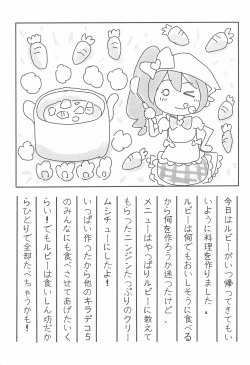 今日はルビーがいつ帰ってきてもい
いように料理を作りました。
ルビーは何でもおいしそうに食べる
から何を作ろうか迷ったけど、
メニューはやっぱりルビーに教えて
もらったニンジンたっぷりのクリー
ムシチューにしたよ!
いっぱい作ったから他のキラデコ5
のみんなにも食べさせてあげたいく
らい!でもルビーは食いしん坊だか
らひとりで全部たべちゃうかも!